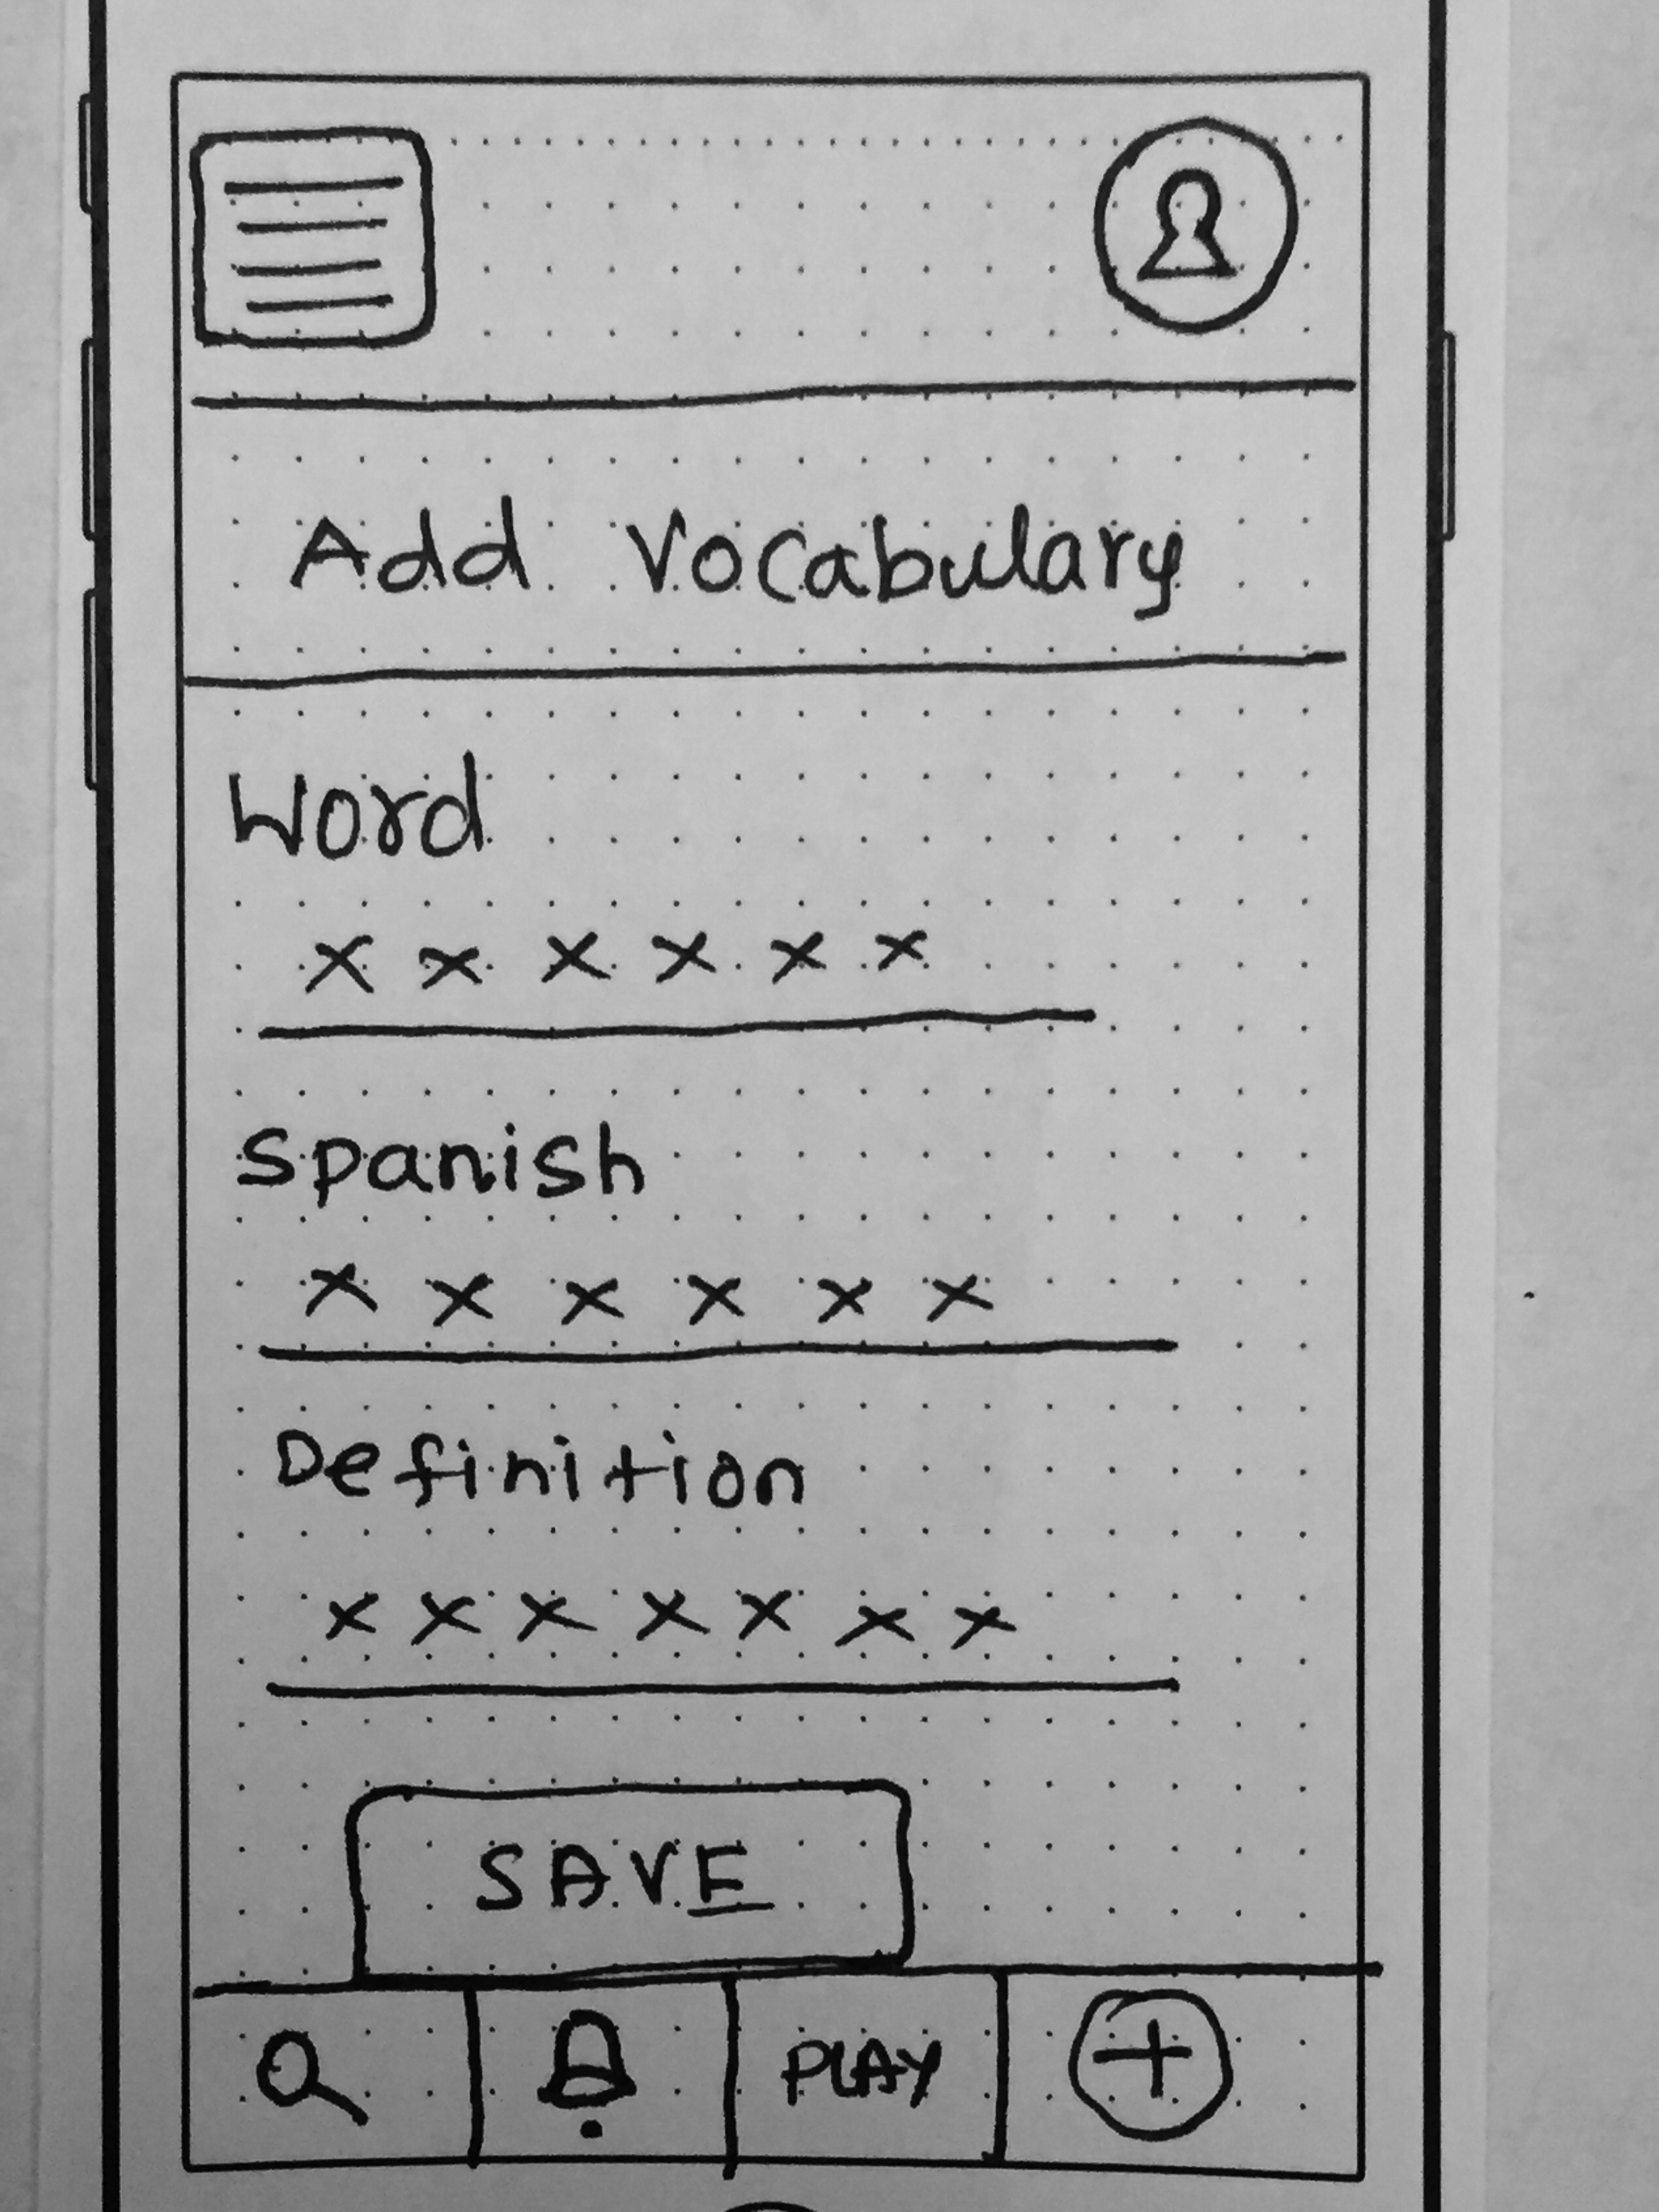 Add Vocabulary
Word
x x x x x x
Spanish
x x x x x x
Definition
x x x x x x x
SAVE
PLAY